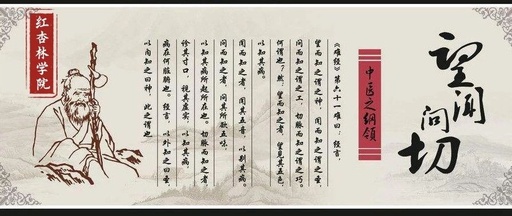 望闻问切
中医之纲领
《难经》第六十一难曰：经言，
望而知之谓之神，闻而知之谓之圣，
问而知之谓之工，切脉而知之谓之巧。
何谓也？然：望而知之者，望见其五色，
以知其病。
闻而知之者，闻其五音，以别其病。
问而知之者，问其所欲五味，
以知其病所起所在也。切脉而知之者，
诊其寸口，视其虚实，以知其病，
病在何脏腑也。经言，以外知之曰圣，
以内知之曰神，此之谓也
红杏林学院